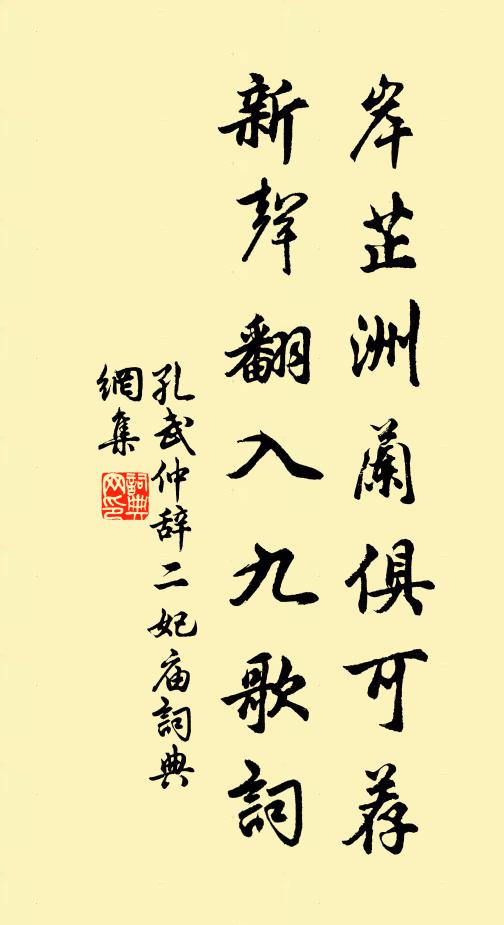 岸芷洲蘭俱可荐
新聲翻入九歌詞
孔武仲辞二妃庙詞典
網集
詞典
网印